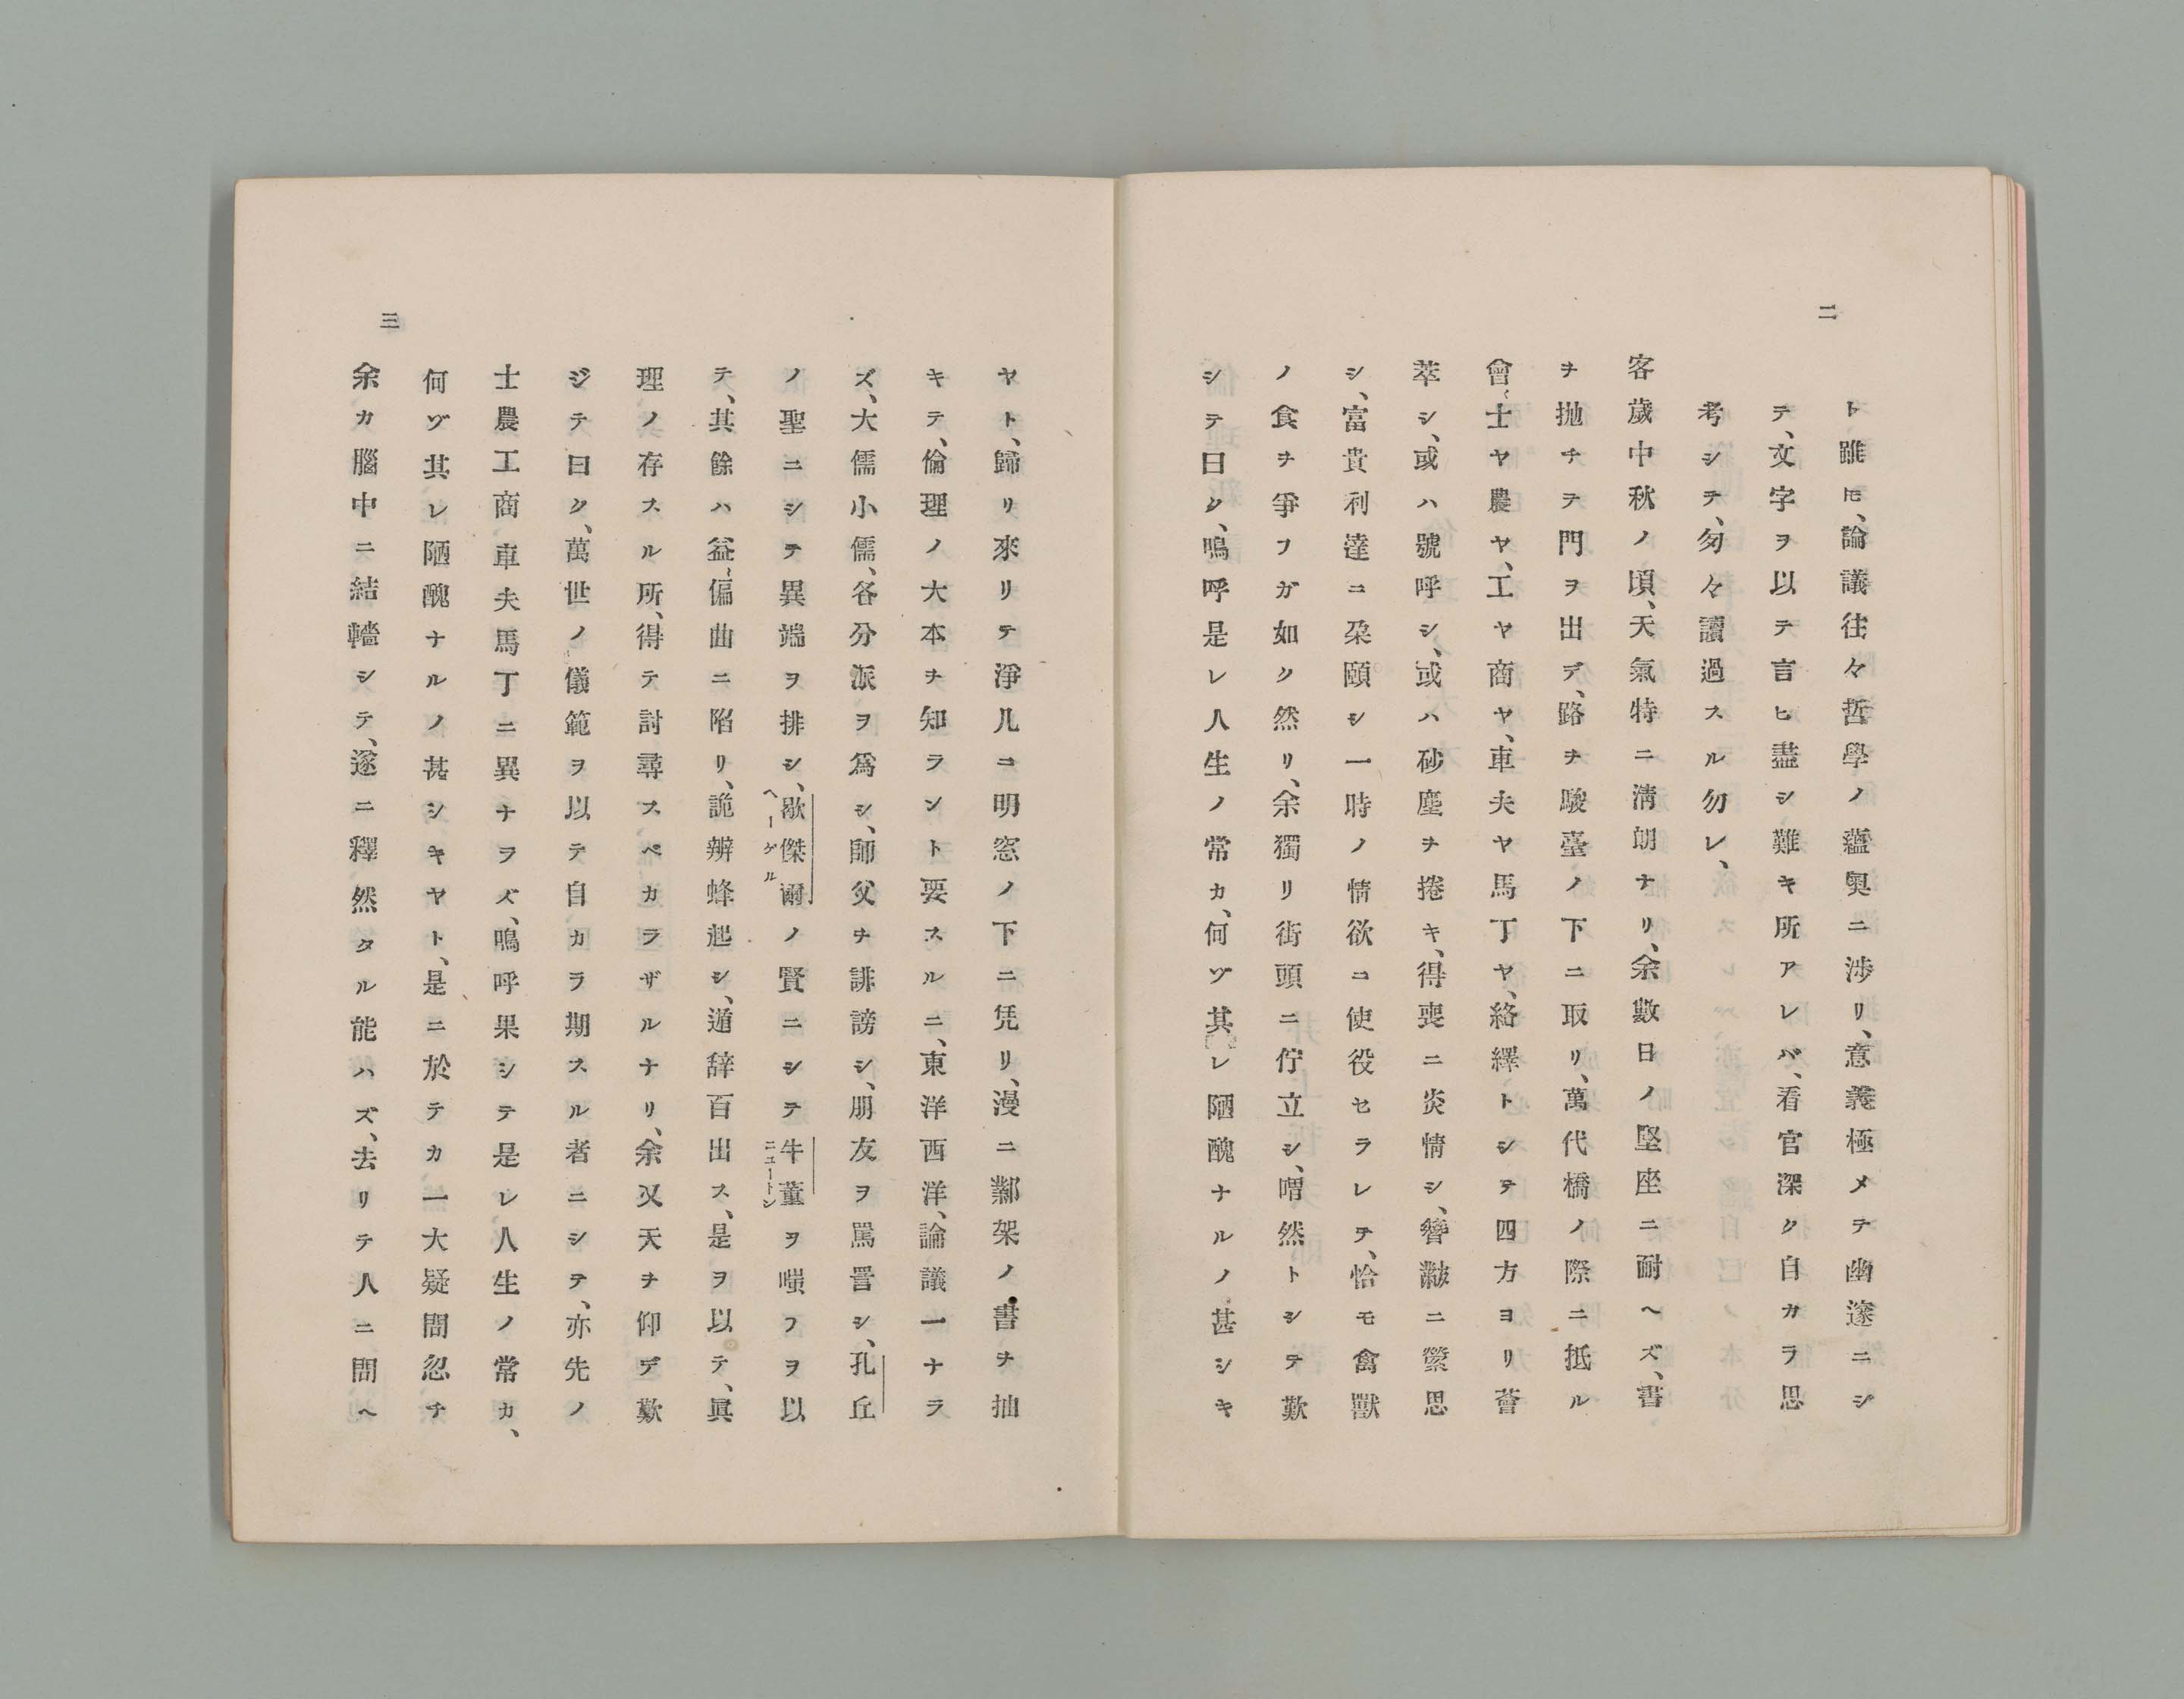 二
ト雖ㇳモ、論議往々哲學ノ蘊奧ニ渉リ、意義極メテ幽邃ニシ
テ、文字ヲ以テ言ヒ盡シ難キ所アレバ、看官深ク自カラ思
考シテ、匆々讀過スル勿レ、
客歲中秋ノ頃、天氣特ニ淸朗ナリ、余數日ノ堅座ニ耐ヘズ、書
ヲ拋チテ門ヲ出デ、路ヲ駿臺ノ下ニ取リ、萬代橋ノ際ニ抵ル
會、士ヤ農ヤ、工ヤ商ヤ、車夫ヤ馬丁ヤ、絡繹トシテ四方ヨリ薈
萃シ、或ハ號呼シ、或ハ砂塵ヲ捲キ、得喪ニ炎情シ、顰蹙ニ縈思
シ、富貴利達ニ朶頤シ一時ノ情欲ニ使役セラレテ、恰モ禽獸
ノ食ヲ爭フガ如ク然リ、余獨リ街頭ニ佇立シ、喟然トシテ歎
シテ曰ク、嗚呼是レ人生ノ常カ、何ヅ其レ陋醜ナルノ甚シキ
ヤト、歸リ來リテ淨几ニ明窓ノ下ニ凭リ、漫ニ鄴架ノ書ヲ抽
キテ、倫理ノ大本ヲ知ラント要スルニ、東洋西洋、論議一ナラ
ズ、大儒小儒、各分派ヲ爲シ、師父ヲ誹謗シ、朋友ヲ罵詈シ、孔丘
ノ聖ニシテ異端ヲ排シ、歇傑爾ノ賢ニシテ牛董ヲ嗤フヲ以
ヘーゲル
ニュートン
テ、其餘ハ益、偏曲ニ陷リ、詭辨蜂起シ、遁辞百出ス、是ヲ以テ、眞
理ノ存スル所、得テ討尋スベカラザルナリ、余又天ヲ仰デ歎
ジテ曰ク、萬世ノ儀範ヲ以テ自カラ期スル者ニシテ、亦先ノ
士農工商車夫馬丁ニ異ナラズ、嗚呼果シテ是レ人生ノ常カ、
何ヅ其レ陋醜ナルノ甚シキヤト、是ニ於テカ一大疑問忽チ
余カ腦中ニ結轖シテ、遂ニ釋然タル能ハズ、去リテ人ニ問ヘ
三